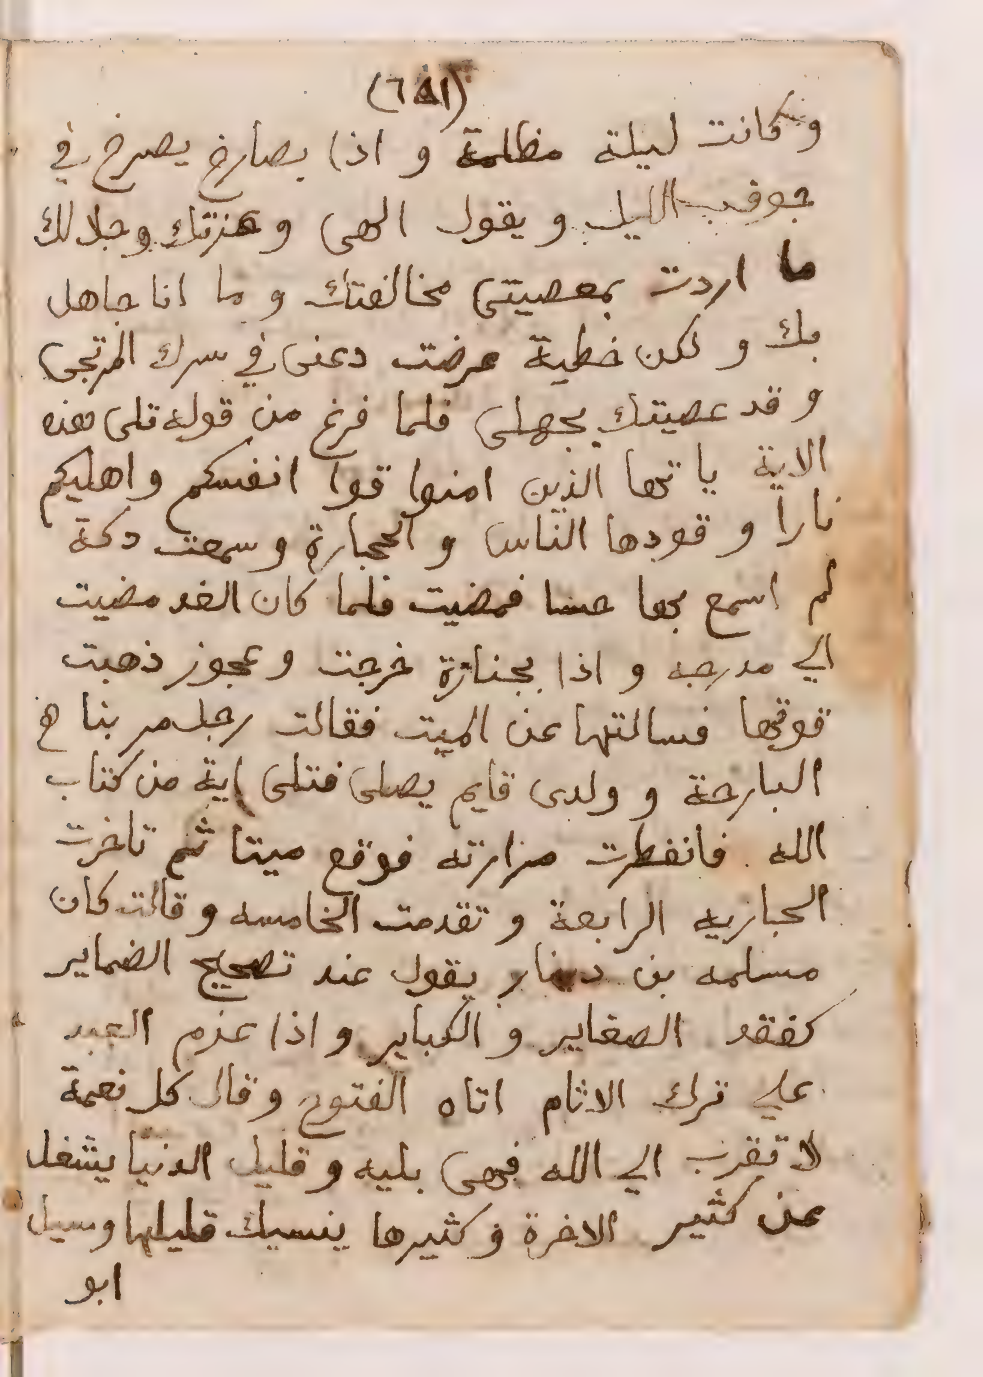 (٦٨١)
و كانت ليلة مظلمة و اذا بصارخ يصرخ في
جوف الليل و يقول الهى و عزتك وجلالك
ما اردت بمعصيتى مخالفتك و ما انا جاهل
بك و لكن خطية عرضت دعنى في سرك المرتجى
و قد عصيتك بجهلى فلما فرغ من قوله تلى هذه
الاية يا ايها الذين امنوا قوا انفسكم و اهليكم
نارا و قودها الناس و الحجارة و سمعت دكة
لم اسمع بعها حسا فمضيت فلما كان الغد مضيت
الي مدرجه و اذا بجنازة خرجت و عجوز ذهبت
قوتها فسالتها عن الميت فقالت رجل مر بنا
البارحة و ولدى قايم يصلى فتلى اية من كتاب
الله فانفطرت مرارته فوقع ميتا ثم تاخرت
الجاريه الرابعة و تقدمت الخامسه و قالت كان
مسلمه بن دينار يقول عند تصحيح الضماير
كفقد الصغاير و الكباير و اذا عزم العبد
علي ترك الاثام اتاه الفتوح و قال كل نعمة
لا تقرب الي الله فهى بليه و قليل الدنيا يشغل
عن كثير الاخرة و كثيرها ينسيك قليلها وسيل
ابو